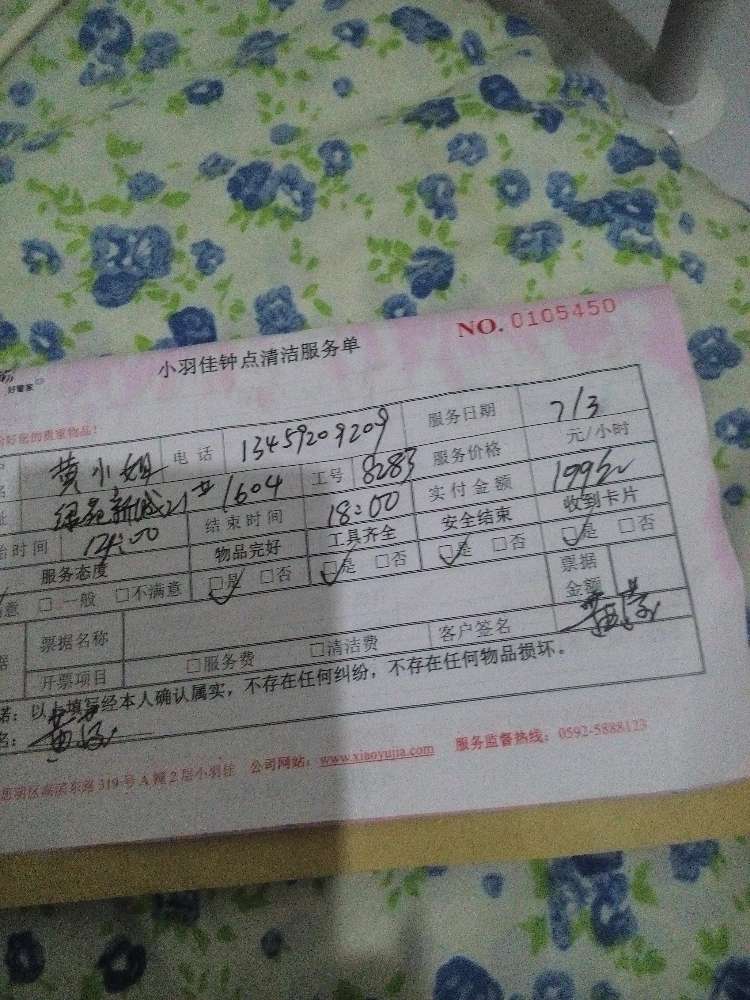 NO. 0105450
好管家
小羽佳钟点清洁服务单
好您的贵重物品!
名 黄小姐 电话 13459209209 服务日期 7/3
址 绿苑新城21# 1604 工号 8283 服务价格 元/小时
始时间 14:00 结束时间 18:00 实付金额 199元
服务态度 物品完好 工具齐全 安全结束 收到卡片
意 □ 一般 □不满意 □是 □否 □是 □否 □是 □否 □是 □否
票据名称 票据金额
开票项目 □服务费 □清洁费 客户签名
诺: 以上填写经本人确认属实,不存在任何纠纷,不存在任何物品损坏。
名:
思明区 东路319号A幢2层小羽佳 公司网站: www.xiaoyujia.com 服务监督热线: 0592-5888123